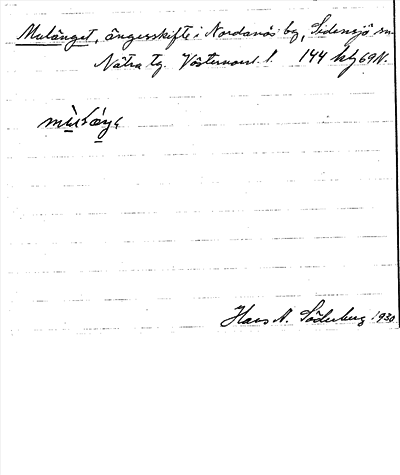 Mulänget, ängesskifte i Nordanås by, Sidensjö sn
Nätra tg. Västernorrl. l. 144 69 N.
Hans N. Söderberg 1930